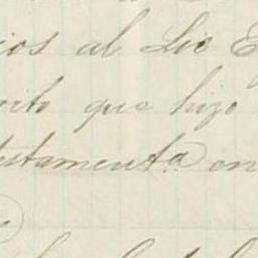 ios al Lic E
rito que hizo
testamentª en